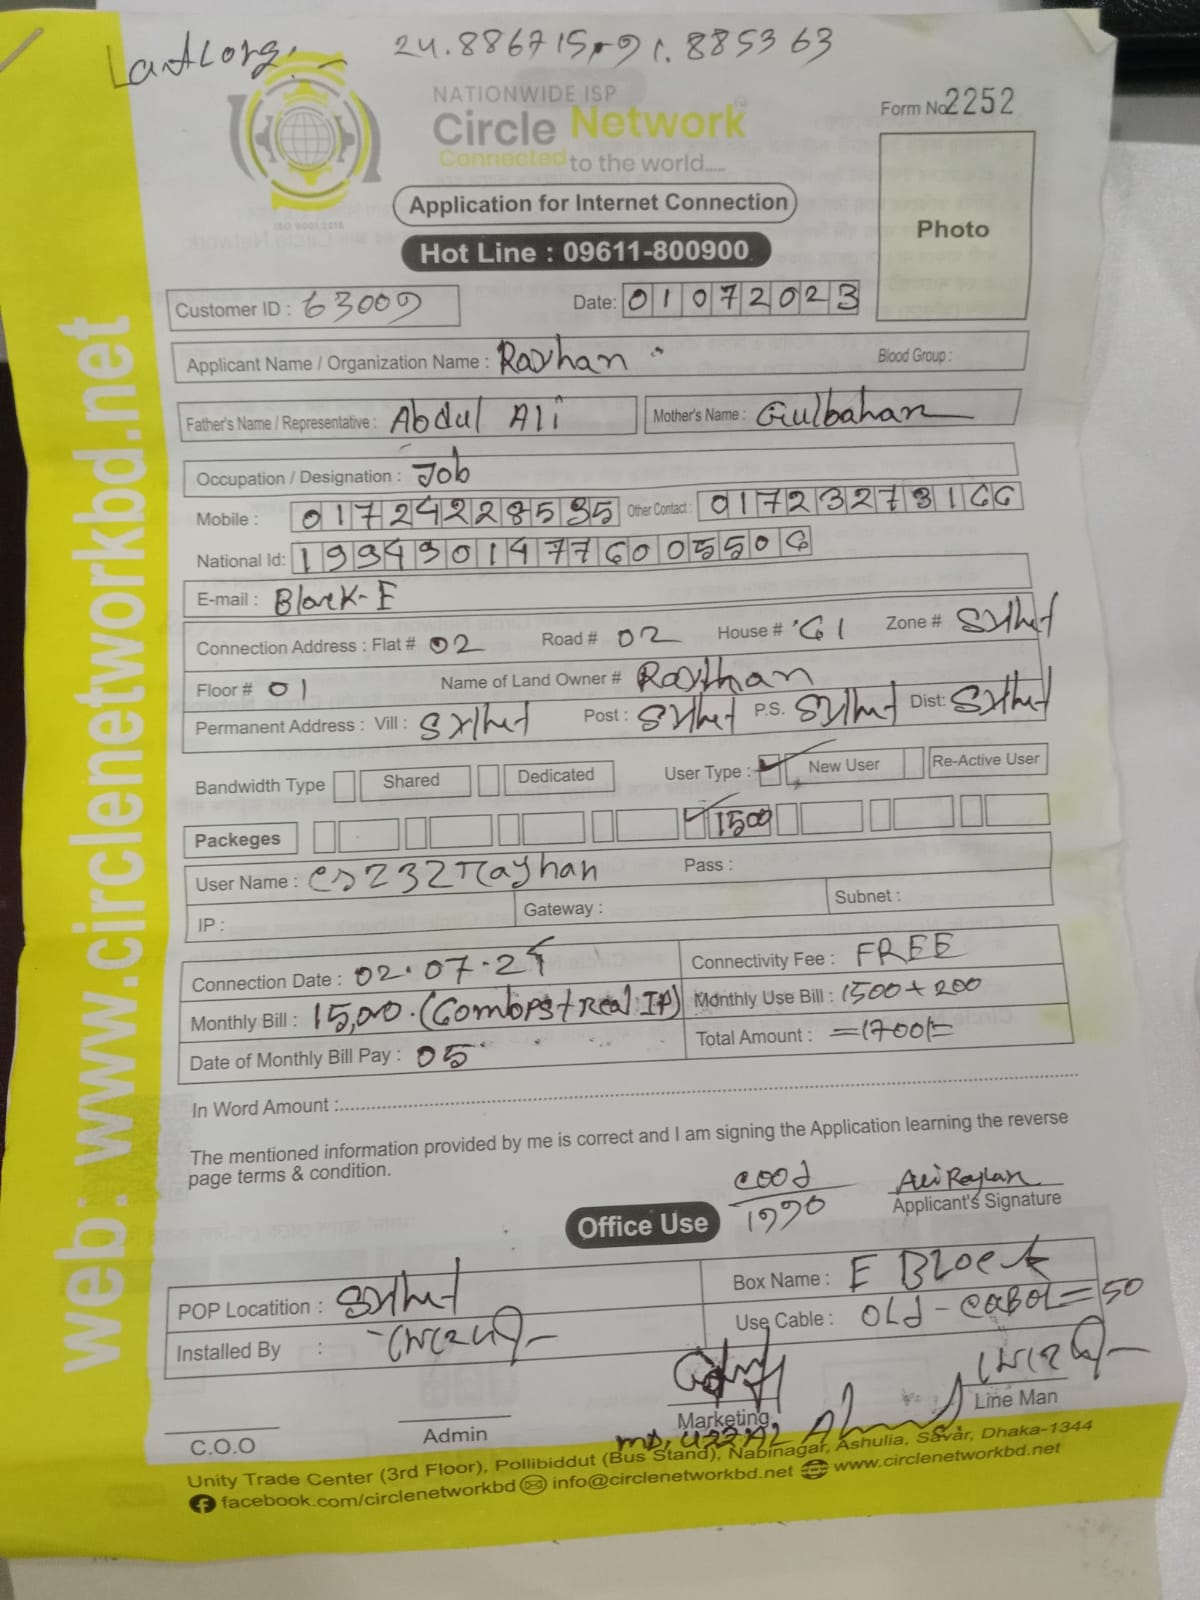 LatLong:- 24.886715, 91.885363
NATIONWIDE ISP
Circle Network
Connected to the world.....
ISO 9001:2015
Form No 2252
Photo
Application for Internet Connection
Hot Line : 09611-800900
Customer ID : 63009
Date: 01072023
Applicant Name / Organization Name : Rayhan
Blood Group :
Father's Name / Representative : Abdul Ali
Mother's Name : Gulbahan
Occupation / Designation : Job
Mobile :
Other Contact : 01723273166
National Id: 19949014776005506
E-mail : Block-E
Connection Address : Flat # 02 Road # 02 House # 61 Zone # Sylhet
Floor # 01 Name of Land Owner # Raythan
Permanent Address : Vill : Sylhet Post : Sylhet P.S. Sylhet Dist: Sylhet
Bandwidth Type Shared Dedicated User Type : New User Re-Active User
Packeges 1500
User Name : cs232rayhan Pass :
IP : Gateway : Subnet :
Connection Date : 02.07.21 Connectivity Fee : FREE
Monthly Bill : 15,00.(60mbps+Real IP) Monthly Use Bill : 1500+200
Date of Monthly Bill Pay : 05 Total Amount : =1700/=
In Word Amount :
The mentioned information provided by me is correct and I am signing the Application learning the reverse
page terms & condition.
1990
Ali Rayhan
Applicant's Signature
Office Use
POP Locatition : Sylhet Box Name : E Block
Installed By : Use Cable : OLd-cabol=50
C.O.O Admin Marketing Line Man
Unity Trade Center (3rd Floor), Pollibiddut (Bus Stand), Nabinagar, Ashulia, Savar, Dhaka-1344
facebook.com/circlenetworkbd info@circlenetworkbd.net www.circlenetworkbd.net
web: www.circlenetworkbd.net